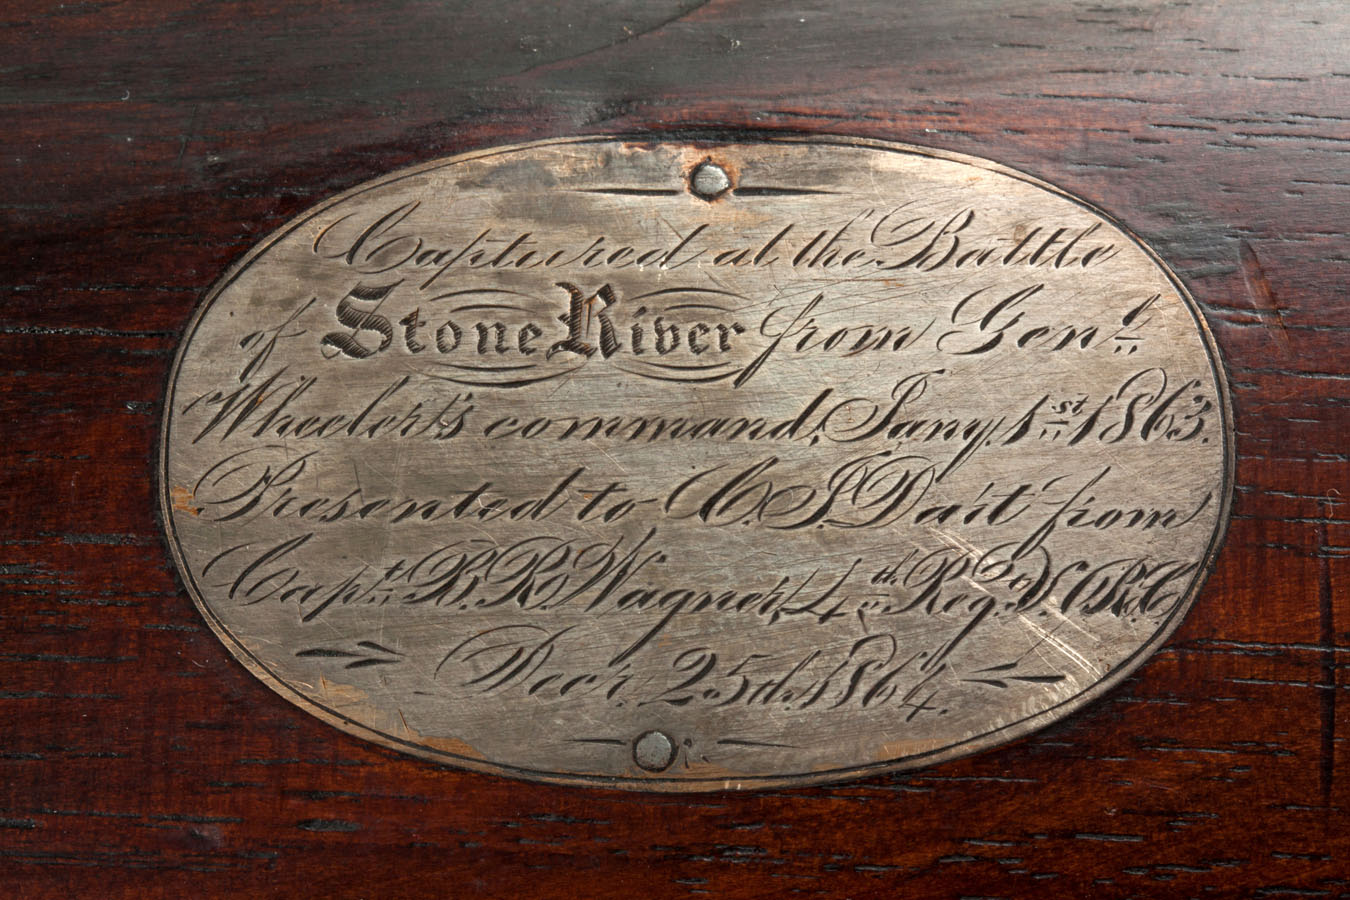 Captured at the Battle
of Stone River from Genl.
Wheeler's command, Jany. 1st 1863.
Presented to C. J. Dait from
Capt. R. R. Wagner, 4th Reg.
Decr. 25th 1864.